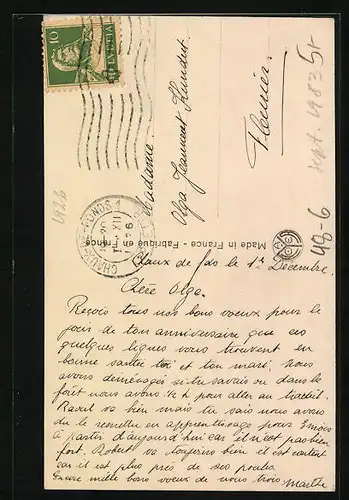 10
HELVETIA
1926
Madame
Olga Jeanneret Kundert
Fleurier.
Made in France - Fabriqué en France
48-6
sept. 1983 5.-
Chaux de fds le 1er Décembre.
Chère Olga.
Reçois tous nos bons voeux pour le
jour de ton anniversaire que ces
quelques lignes vous trouvent en
bonne santée toi et ton mari, nous
avons deménagés si tu savais ou dans la
forêt nous avons ½ h pour aller au travail.
Raoul va bien mais tu sais nous avons
du le remettre en apprentissage pour 3 mois
à partir d'aujourd'hui car il n'est pas bien
fort. Robert va toujours bien il est content
car il est plus près de ses poules.
Encore mille bons voeux de nous trois Marthe